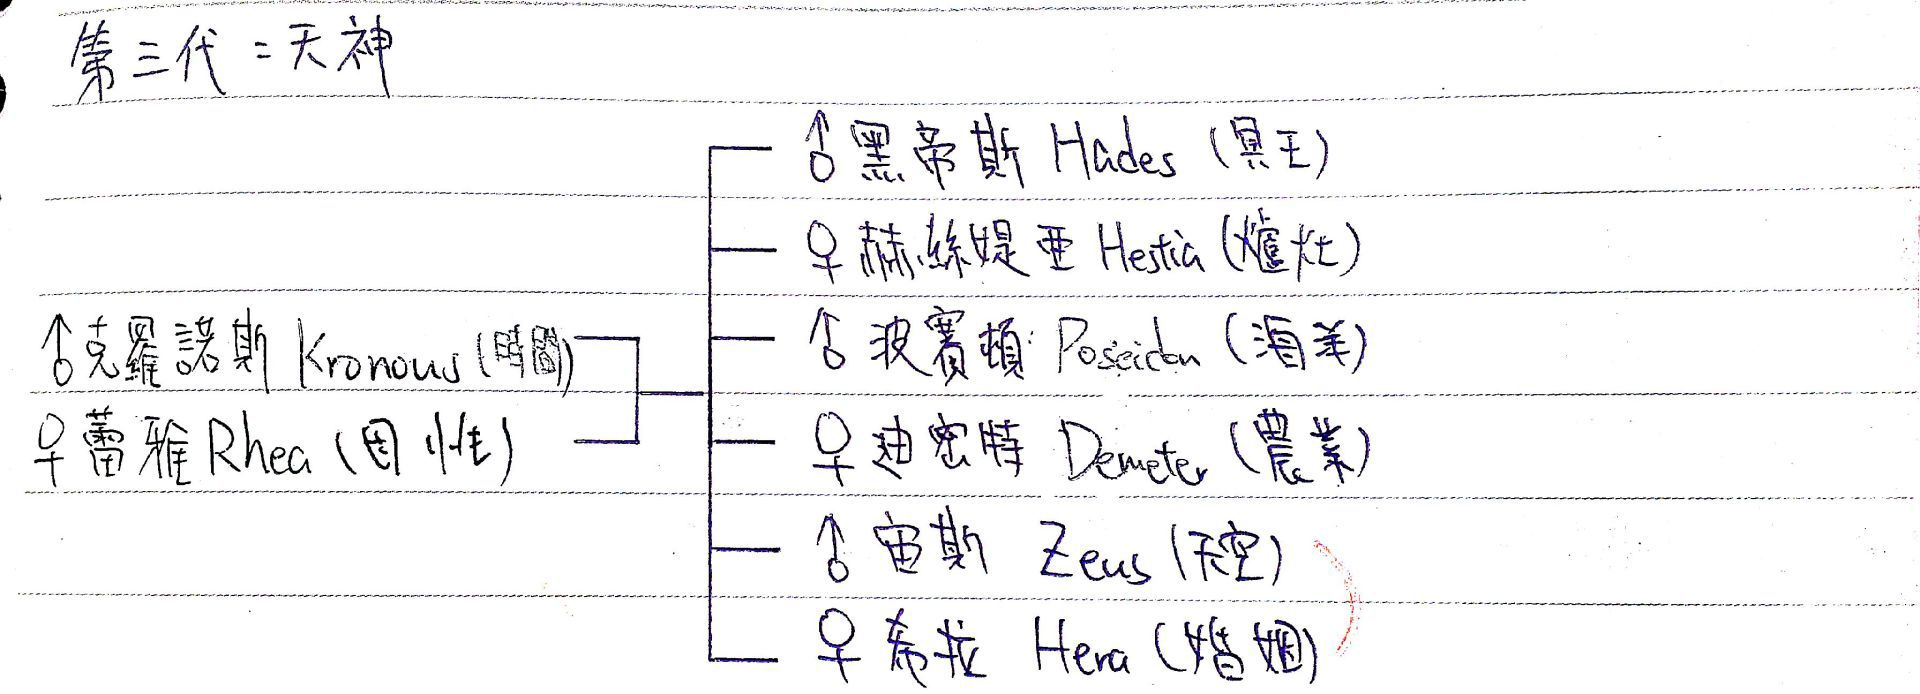 第三代：天神
♂黑帝斯 Hades (冥王)
♀赫絲媞亞 Hestia (爐灶)
♂克羅諾斯 Kronous (時間)
♂波賽頓 Poseidon (海洋)
♀蕾雅 Rhea (母性)
♀迪密特 Demeter (農業)
♂宙斯 Zeus (天空)
♀希拉 Hera (婚姻)